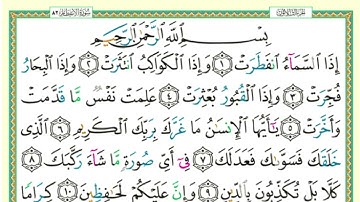 سورة الانفطار ٨٢
الجزء الثلاثون
بِسْمِ ٱللَّهِ ٱلرَّحْمَٰنِ ٱلرَّحِيمِ
إِذَا ٱلسَّمَآءُ ٱنفَطَرَتْ ١ وَإِذَا ٱلْكَوَاكِبُ ٱنتَثَرَتْ ٢ وَإِذَا ٱلْبِحَارُ
فُجِّرَتْ ٣ وَإِذَا ٱلْقُبُورُ بُعْثِرَتْ ٤ عَلِمَتْ نَفْسٌ مَّا قَدَّمَتْ
وَأَخَّرَتْ ٥ يَٰٓأَيُّهَا ٱلْإِنسَٰنُ مَا غَرَّكَ بِرَبِّكَ ٱلْكَرِيمِ ٦ ٱلَّذِى
خَلَقَكَ فَسَوَّىٰكَ فَعَدَلَكَ ٧ فِىٓ أَىِّ صُورَةٍ مَّا شَآءَ رَكَّبَكَ ٨
كَلَّا بَلْ تُكَذِّبُونَ بِٱلدِّينِ ٩ وَإِنَّ عَلَيْكُمْ لَحَٰفِظِينَ ١٠ كِرَامًا